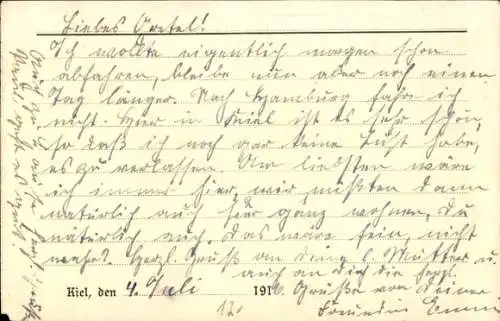 Liebes Gretel!
Ich wollte eigentlich morgen schon
abfahren, bleibe nun aber noch einen
Tag länger. Nach Hamburg fahre ich
nicht. Hier in Kiel ist es sehr schön,
so daß ich noch gar keine Lust habe,
es zu verlassen. Am liebsten wäre
ich immer hier, wir müßten dann
natürlich auch hier ganz wohnen, Du
natürlich auch. Das wäre fein, nicht
wahr? Herzl. Gruß an Deine l. Mutter u.
auch an Dich die herzl.
Kiel, den 4. Juli 1916. Grüße von Deiner
12. Freundin